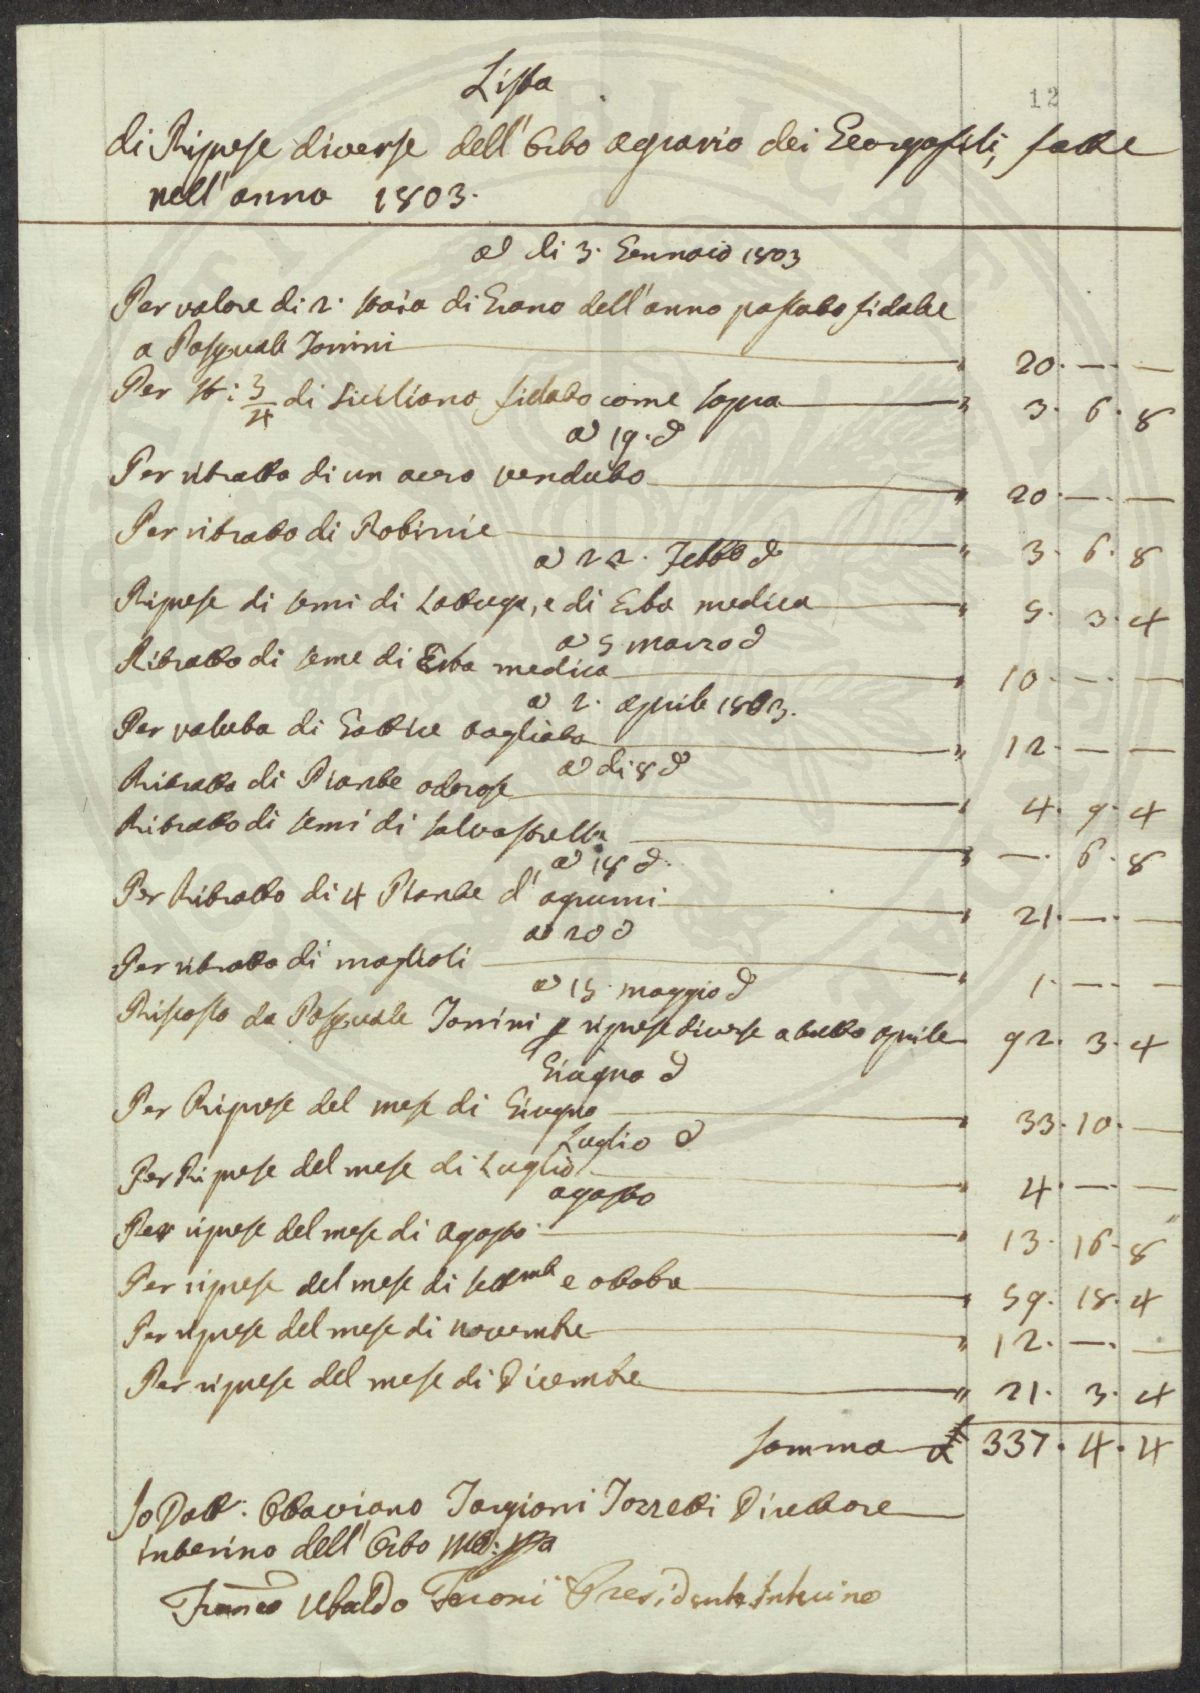 12
Lista
di Riprese diverse dell'Orto agrario dei Georgofili, fatte
nell'anno 1803.
a di 3. Gennaio 1803
Per valore di 2. staia di Grano dell'anno passato fidate
a Pasquale Tonini " 20. — —
Per st: 3/4 di Siciliano fidato come sopra " 3. 6. 8
a 19. d
Per ritratto di un acero venduto " 20. — —
Per ritratto di Robinie " 3. 6. 8
a 22. Febb d
Riprese di semi di Lattuga, e di Erba medica " 5. 3. 4
a 5 marzo d
Ritratto di seme di Erba medica " 10. — —
a 2. aprile 1803.
Per valuta di tagliata " 12. — —
a di 8 d
Ritratto di Piante odorose " 4. 9. 4
Ritratto di semi di salvastrella " —. 6. 8
a 18 d.
Per Ritratto di 4 Piante d'agrumi " 21. — —
a 20 d
Per ritratto di maglioli " 1. — —
a 15. maggio d
Riscosso da Pasquale Tonini p riprese diverse a tutto aprile 92. 3. 4
Giugno d
Per Riprese del mese di Giugno " 33. 10. —
Luglio d
Per Riprese del mese di Luglio " 4. — —
agosto
Per riprese del mese di Agosto " 13. 16. 8
Per riprese del mese di settmbe e ottobre " 59. 18. 4
Per riprese del mese di novembre " 12. — —
Per riprese del mese di Dicembre " 21. 3. 4
Somma £ 337. 4. 4
Io Dott: Ottaviano Targioni Tozzetti Direttore
interino dell'Orto mo: ppa
Franco Ubaldo Feroni Presidente Interino